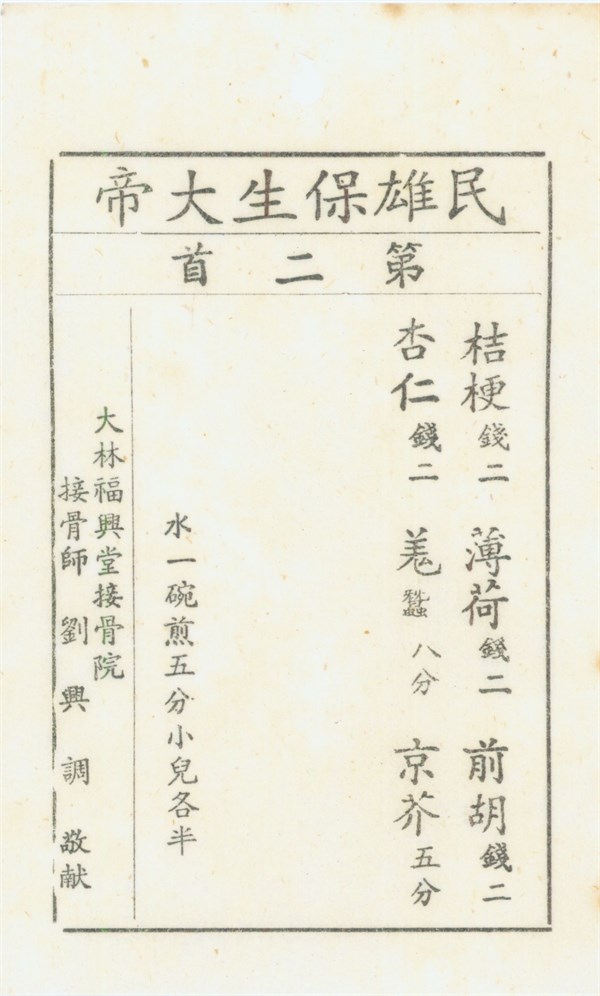 民雄保生大帝
第二首
桔梗 錢二 薄荷 錢二 前胡 錢二
杏仁 錢二 羗蠶 八分 京芥 五分
水一碗煎五分小兒各半
大林福興堂接骨院
接骨師 劉興調 敬献